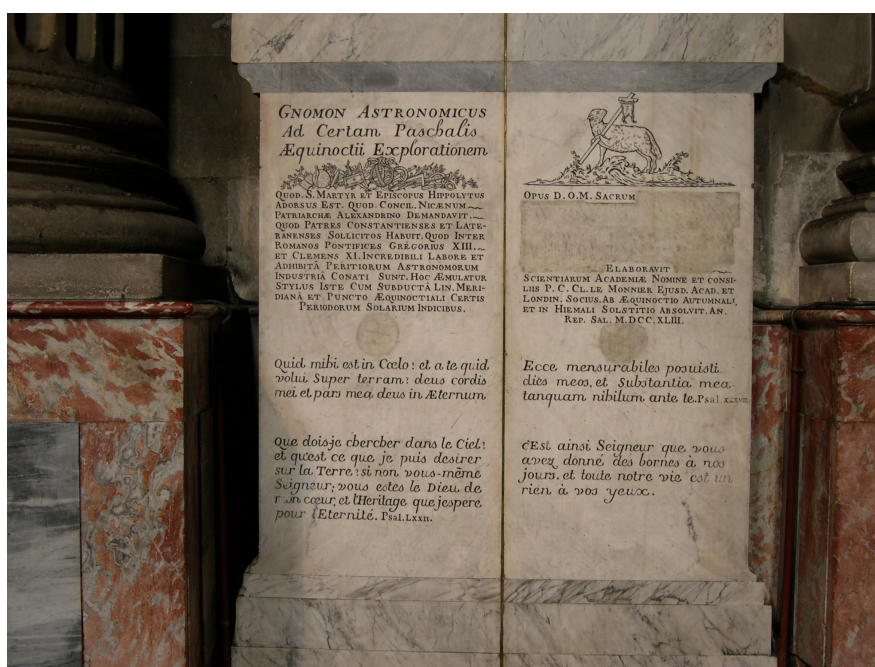 GNOMON ASTRONOMICUS
Ad Certam Paschalis
Æquinoctii Explorationem
QUOD. S. MARTYR ET EPISCOPUS HIPPOLYTUS
ADORSUS EST. QUOD. CONCIL. NICÆNUM
PATRIARCHÆ ALEXANDRINO DEMANDAVIT.
QUOD PATRES CONSTANTIENSES ET LATE-
RANENSES SOLLICITOS HABUIT. QUOD INTER
ROMANOS PONTIFICES GREGORIUS XIII.
ET CLEMENS XI. INCREDIBILI LABORE ET
ADHIBITÂ PERITIORUM ASTRONOMORUM
INDUSTRIÂ CONATI SUNT. HOC ÆMULATUR
STYLUS ISTE CUM SUBDUCTÂ LIN. MERI-
DIANÂ ET PUNCTO ÆQUINOCTIALI CERTIS
PERIODORUM SOLARIUM INDICIBUS.
Quid mihi est in Cœlo? et a te quid
volui Super terram? deus cordis
mei et pars mea deus in Æternum
Que dois-je chercher dans le Ciel?
et qu'est ce que je puis desirer
sur la Terre? si non vous-même
Seigneur; vous estes le Dieu de
mon cœur, et l'Heritage que j'espere
pour l'Eternité. Psal. LXXII.
OPUS D. O. M. SACRUM
ELABORAVIT
SCIENTIARUM ACADEMIÆ NOMINE ET CONSI-
LIIS P. C. CL. LE MONNIER EJUSD. ACAD. ET
LONDIN. SOCIUS. AB ÆQUINOCTIO AUTUMNALI,
ET IN HIEMALI SOLSTITIO ABSOLVIT. AN.
REP. SAL. M.DCC.XLIII.
Ecce mensurabiles posuisti
dies meos, et Substantia mea
tanquam nihilum ante te. Psal.
C'Est ainsi Seigneur que vous
avez donné des bornes à nos
jours, et toute notre vie est un
rien à vos yeux.